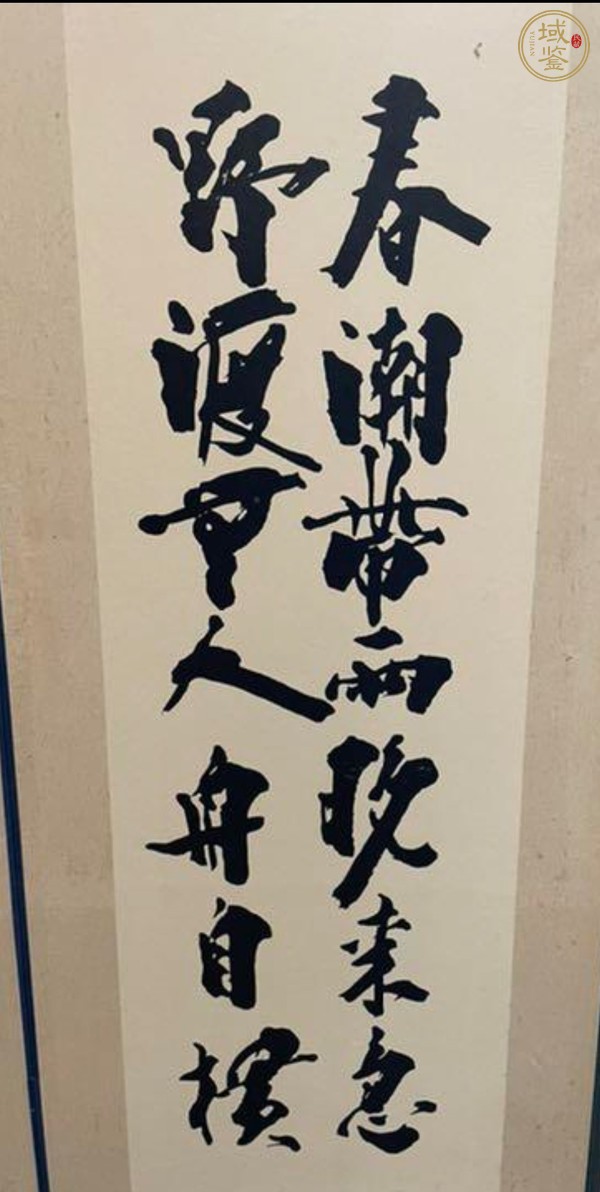 春潮帶雨晚来急
野渡无人舟自横
域鉴
YUJIAN